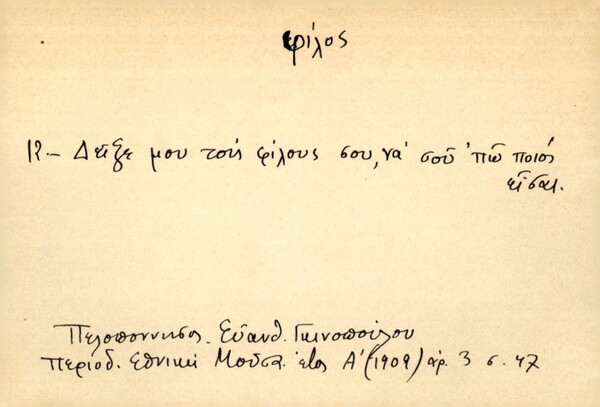 φίλος
12.- Δεῖξε μου τούς φίλους σου, νά σοῦ 'πῶ ποιός
εἶσαι.
Πελοπόννησος. Εὐανθ. Γιαννοπούλου
Περιοδ. Εθνική Μοῦσα. ἔτος Α' (1909) ἀρ. 3 σ. 47